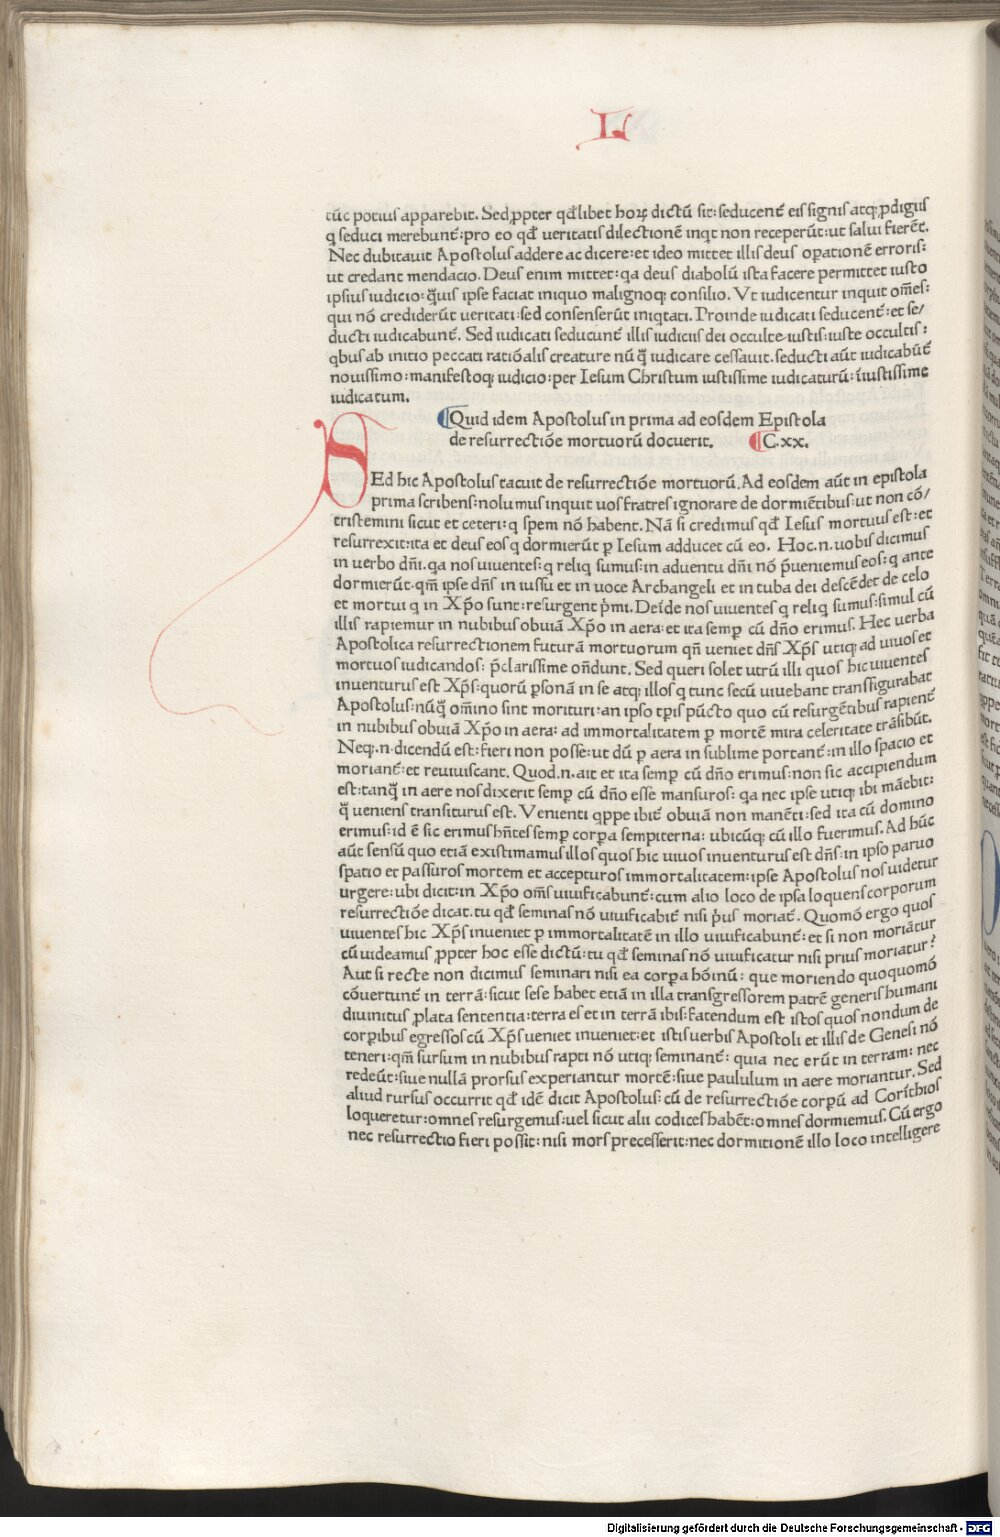 L
tūc potius apparebit. Sed ꝓpter qđlibet hoꝝ dictū sit: seducent̄ eis signis atqꝫ ꝓdigiis
q seduci merebunt̄: pro eo qđ veritatis dilectionē inqt non receperūt: ut salui fierēt.
Nec dubitauit Apostolus addere ac dicere: et ideo mittet illis deus opationē erroris:
ut credant mendacio. Deus enim mittet: qa deus diabolū ista facere permittet iusto
ipsius iudicio: q̄uis ipse faciat iniquo malignoqꝫ consilio. Vt iudicentur inquit om̄es:
qui nō crediderūt veritati: sed consenserūt iniqtati. Proinde iudicati seducent̄: et se/
ducti iudicabunt̄. Sed iudicati seducunt̄ illis iudiciis dei occulte iustis: iuste occultis:
qbus ab initio peccati ratiōalis creature nūq̄ iudicare cessauit. seducti aūt iudicabūt̄
nouissimo: manifestoqꝫ iudicio: per Iesum Christum iustissime iudicaturū: īiustissime
iudicatum.
¶Quid idem Apostolus in prima ad eosdem Epistola
de resurrectiōe mortuorū docuerit. ¶C.xx.
SEd hic Apostolus tacuit de resurrectiōe mortuorū. Ad eosdem aūt in epistola
prima scribens: nolumus inquit uos fratres ignorare de dormiētibus: ut non cō/
tristemini sicut et ceteri: q spem nō habent. Nā si credimus qđ Iesus mortuus est: et
resurrexit: ita et deus eos q dormierūt ꝑ Iesum adducet cū eo. Hoc.n. uobis dicimus
in verbo dn̄i. qa nos viuentes: q reliq sumus: in aduentu dn̄i nō p̄ueniemus eos: q ante
dormierūt. qm̄ ipse dn̄s in iussu et in uoce Archangeli et in tuba dei descēdet de celo
et mortui q in Xp̄o sunt: resurgent p̄mi. Deīde nos viuentes q reliq sumus: simul cū
illis rapiemur in nubibus obuiā Xp̄o in aera: et ita semꝑ cū dn̄o erimus. Hec uerba
Apostolica resurrectionem futurā mortuorum qn̄ veniet dn̄s Xp̄s utiqꝫ ad uiuos et
mortuos iudicandos: p̄clarissime on̄dunt. Sed queri solet utrū illi quos hic uiuentes
inuenturus est Xp̄s: quorū ꝑsonā in se atqꝫ illos q tunc secū uiuebant transfigurabat
Apostolus: nūq̄ om̄ino sint morituri: an ipso tp̄is pūcto quo cū resurgētibus rapient̄
in nubibus obuiā Xp̄o in aera: ad immortalitatem ꝑ mortē mira celeritate trāsibūt.
Neqꝫ.n. dicendū est: fieri non posse: ut dū ꝑ aera in sublime portant̄: in illo spacio et
moriant̄: et reuiuiscant. Quod.n. ait et ita semꝑ cū dn̄o erimus: non sic accipiendum
est: tanq̄ in aere nos dixerit semꝑ cū dn̄o esse mansuros: qa nec ipse utiqꝫ ibi māebit:
q̄ veniens transiturus est. Venienti qppe ibit̄ obuiā non manēti: sed ita cū domino
erimus: id ē sic erimus hn̄tes semꝑ corꝑa sempiterna: ubicūqꝫ cū illo fuerimus. Ad hūc
aūt sensū quo etiā existimamus illos quos hic uiuos inuenturus est dn̄s: in ipso paruo
spatio et passuros mortem et accepturos immortalitatem: ipse Apostolus nos uidetur
urgere: ubi dicit: in Xp̄o om̄s uiuificabunt̄: cum alio loco de ipsa loquens corporum
resurrectiōe dicat. tu qđ seminas nō uiuificabit̄ nisi p̄us moriat̄. Quomō ergo quos
uiuentes hic Xp̄s inueniet ꝑ immortalitatē in illo uiuificabunt̄: et si non moriātur
cū uideamus ꝓpter hoc esse dictū: tu qđ seminas nō uiuificatur nisi prius moriatur?
Aut si recte non dicimus seminari nisi ea corꝑa hōinū: que moriendo quoquomō
cōuertunt̄ in terrā: sicut sese habet etiā in illa transgressorem patrē generis humani
diuinitus ꝓlata sententia: terra es et in terrā ibis: fatendum est istos quos nondum de
corꝑibus egressos cū Xp̄s ueniet inueniet: et istis uerbis Apostoli et illis de Genesi nō
teneri: qm̄ sursum in nubibus rapti nō utiqꝫ seminant̄: quia nec erūt in terram: nec
redeūt: siue nullā prorsus experiantur mortē: siue paululum in aere moriantur. Sed
aliud rursus occurrit qđ idē dicit Apostolus: cū de resurrectiōe corꝑū ad Coriīthios
loqueretur: omnes resurgemus: uel sicut alii codices habēt: omnes dormiemus. Cū ergo
nec resurrectio fieri possit: nisi mors precesserit: nec dormitionē illo loco intelligere
Digitalisierung gefördert durch die Deutsche Forschungsgemeinschaft - DFG